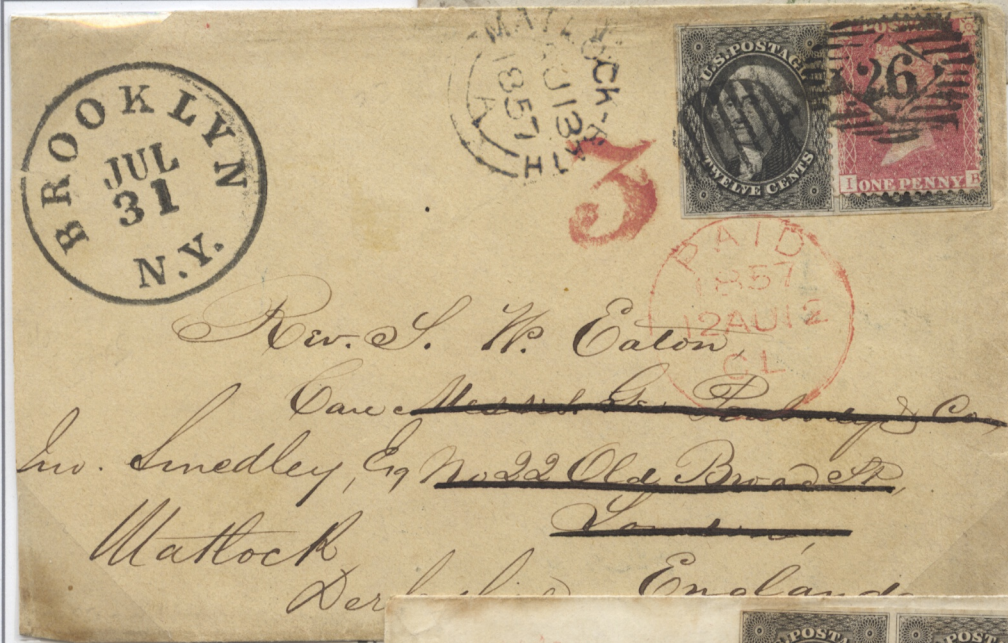 BROOKLYN
JUL
31
N.Y.
MATLOCK-
AU 13
1857
A
3
U.S. POSTAGE
TWELVE CENTS
POSTAGE
26
I ONE PENNY E
PAID
1857
12 AU 12
CL
Rev. S. W. Eaton
Care Messrs. Geo. Peabody & Co,
Jno. Smedley, Esq No 22 Old Broad St,
London,
Matlock
England
U.S. POST
POST